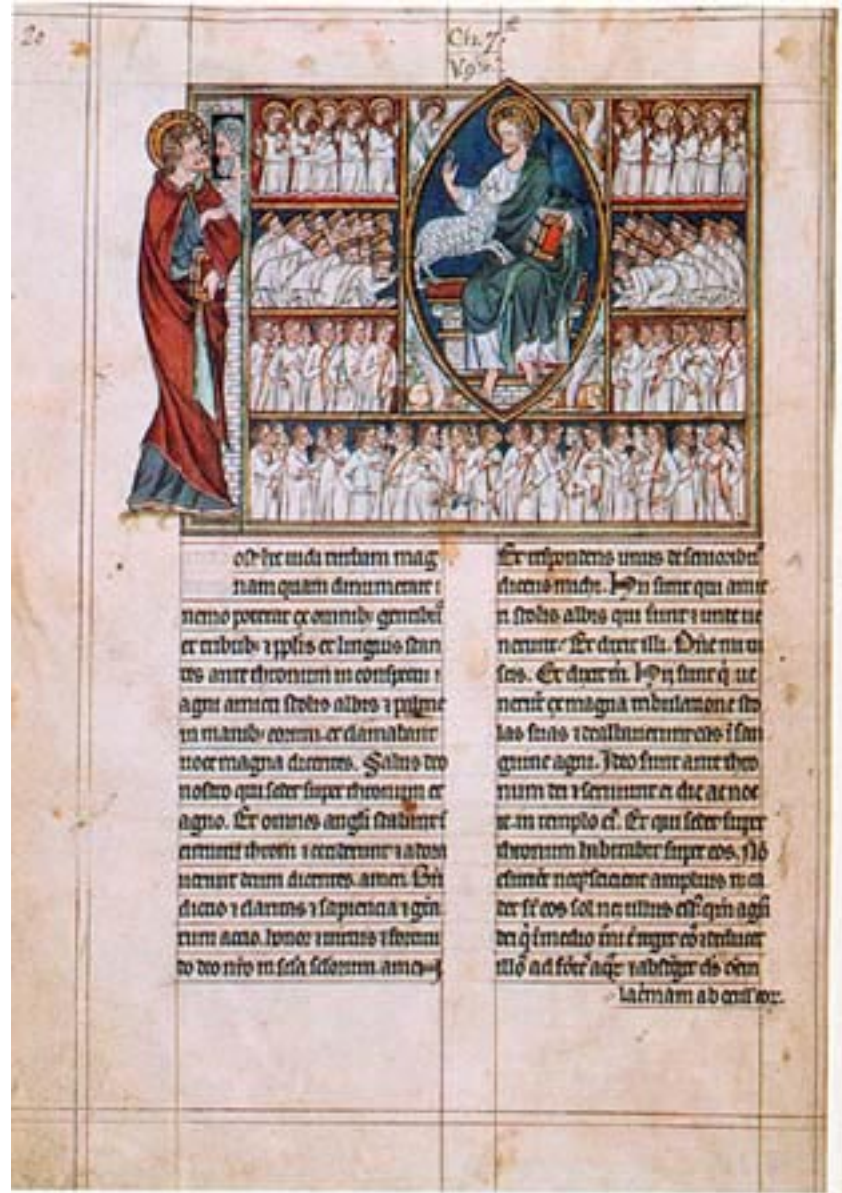 20
Ch. 7.
V. 9
ost hec vidi turbam mag
nam quam dinumerare
nemo poterat ex omnib; gentibus
et tribub; ⁊ pplis et linguis stan
tes ante thronum in conspectu
agni amicti stolis albis ⁊ palme
in manib; eorum. et clamabant
voce magna dicentes. Salus deo
nostro qui sedet super thronum et
agno. Et omnes angli stabant
circuitu throni ⁊ ceciderunt ⁊ adora
uerunt deum dicentes. amen. Bn
dictio ⁊ claritas ⁊ sapiencia ⁊ gra
rum actio. honor ⁊ uirtus ⁊ fortitu
do deo nro in scla sclorum. amen
Et respondens unus de senioribus
dicens michi. Hii sunt qui amic
ti stolis albis qui sunt ⁊ unde ue
nerunt. Et dixit illi. Dne mi tu
scis. Et dixit m. Hii sunt q ue
nerut ex magna tribulatione sto
las suas ⁊ dealbauerunt eas i san
guine agni. Ideo sunt ante thro
num dei ⁊ seruiunt ei die ac noc
te. in templo ei. Et qui sedet super
thronum habitabit super eos. No
esurient neq; scicient amplius n ca
det sr eos sol neq; ullus est. qm agn
dei q i medio
illos ad aq; ⁊ absterget ds oem
lacrimam ab oculis eor.